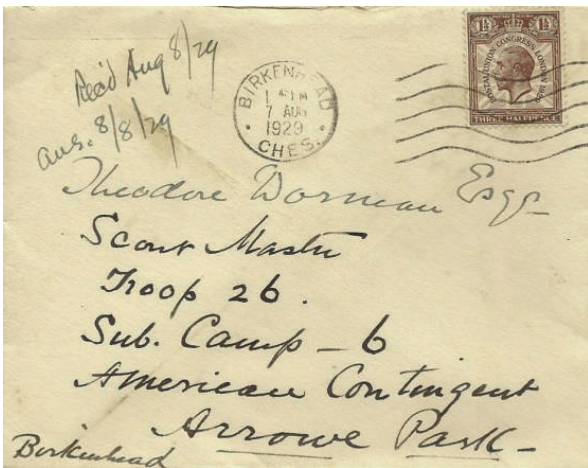 Rec'd Aug 8/29
ans. 8/8/29
BIRKENHEAD
1 PM
7 AUG
1929
CHES.
1½ 1½
POSTAL UNION CONGRESS LONDON 1929
THREE HALFPENCE
Theodore Dorman Esqr
Scout Master
Troop 26.
Sub. Camp - 6
American Contingent
Arrowe Park -
Birkenhead